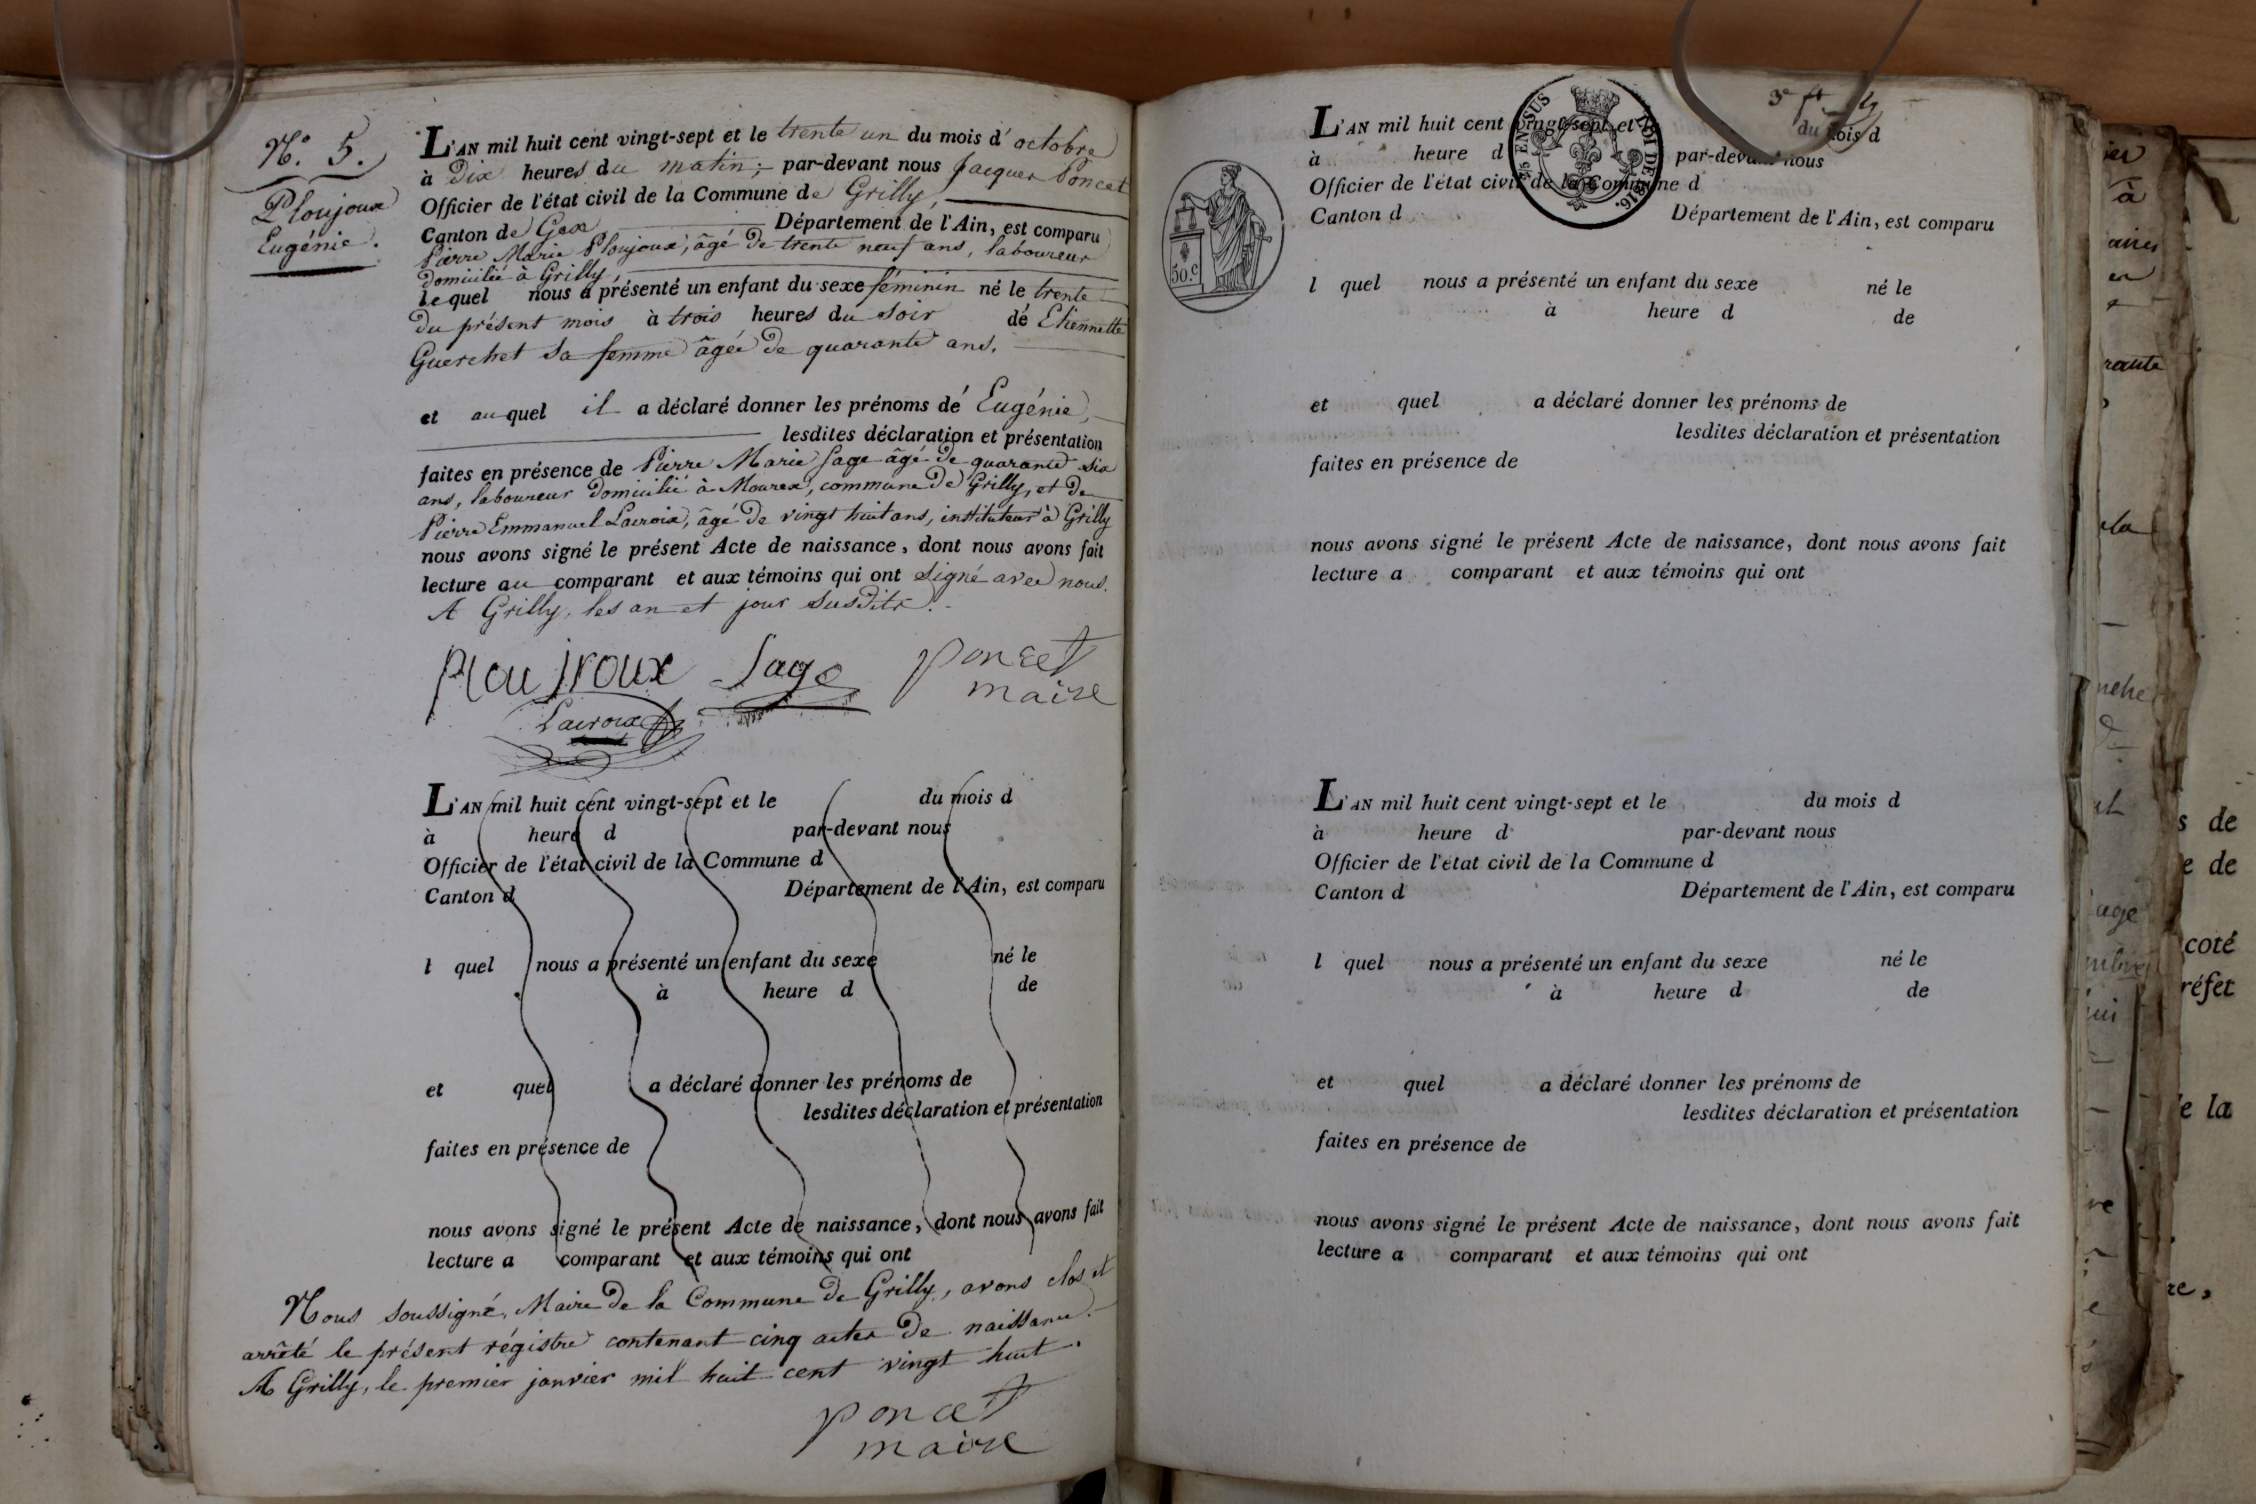 N.° 5.
Ploujoux
Eugénie.
L'AN mil huit cent vingt-sept et le trente un du mois d'octobre
à Dix heures du matin; par-devant nous Jacques Poncet
Officier de l'état civil de la Commune de Grilly,
Canton de Gex Département de l'Ain, est comparu
Pierre Marie Ploujoux, âgé de trente neuf ans, laboureur
domicilié à Grilly,
le quel nous a présenté un enfant du sexe féminin né le trente
du présent mois à trois heures du soir de Etiennette
Guerchet sa femme âgée de quarante ans.
et au quel il a déclaré donner les prénoms de Eugénie,
lesdites déclaration et présentation
faites en présence de Pierre Marie Sage âgé de quarante six
ans, laboureur domicilié à Mourex, commune de Grilly, et de
Pierre Emmanuel Lacroix, âgé de vingt huit ans, instituteur à Grilly
nous avons signé le présent Acte de naissance, dont nous avons fait
lecture au comparant et aux témoins qui ont signé avec nous.
A Grilly, les an et jour susdits.
Ploujroux Sage Poncet
maire
Lacroix
L'AN mil huit cent vingt-sept et le du mois d
à heure d par-devant nous
Officier de l'état civil de la Commune d
Canton d Département de l'Ain, est comparu
l quel nous a présenté un enfant du sexe né le
à heure d de
et quel a déclaré donner les prénoms de
lesdites déclaration et présentation
faites en présence de
nous avons signé le présent Acte de naissance, dont nous avons fait
lecture a comparant et aux témoins qui ont
Nous soussigné, Maire de la Commune de Grilly, avons clos et
arrêté le présent régistre contenant cinq actes de naissance.
A Grilly, le premier janvier mil huit cent vingt huit.
Poncet
maire
3e ft
50.c
EN SUS
LOI DE 1816.
L'AN mil huit cent vingt-sept et du mois d
à heure d par-devant nous
Officier de l'état civil de la Commune d
Canton d Département de l'Ain, est comparu
l quel nous a présenté un enfant du sexe né le
à heure d de
et quel a déclaré donner les prénoms de
lesdites déclaration et présentation
faites en présence de
nous avons signé le présent Acte de naissance, dont nous avons fait
lecture a comparant et aux témoins qui ont
L'AN mil huit cent vingt-sept et le du mois d
à heure d par-devant nous
Officier de l'état civil de la Commune d
Canton d Département de l'Ain, est comparu
l quel nous a présenté un enfant du sexe né le
à heure d de
et quel a déclaré donner les prénoms de
lesdites déclaration et présentation
faites en présence de
nous avons signé le présent Acte de naissance, dont nous avons fait
lecture a comparant et aux témoins qui ont
à
s de
e de
coté
réfet
e la